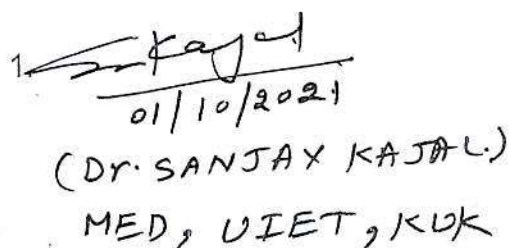 1. Kajal
01/10/2021
(Dr. SANJAY KAJAL.)
MED, UIET, KUK